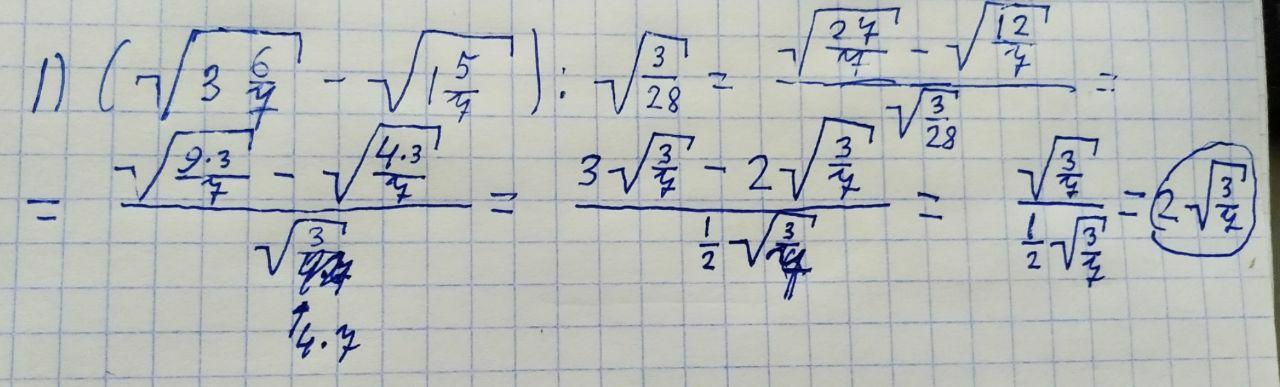 1) (√(3 6/7) - √(1 5/7)) : √(3/28) = (√(27/7) - √(12/7)) / √(3/28) =
= (√(9·3/7) - √(4·3/7)) / √(3/4·7) = (3√(3/7) - 2√(3/7)) / (1/2 √(3/7)) = √(3/7) / (1/2 √(3/7)) = 2√(3/7)
4·7